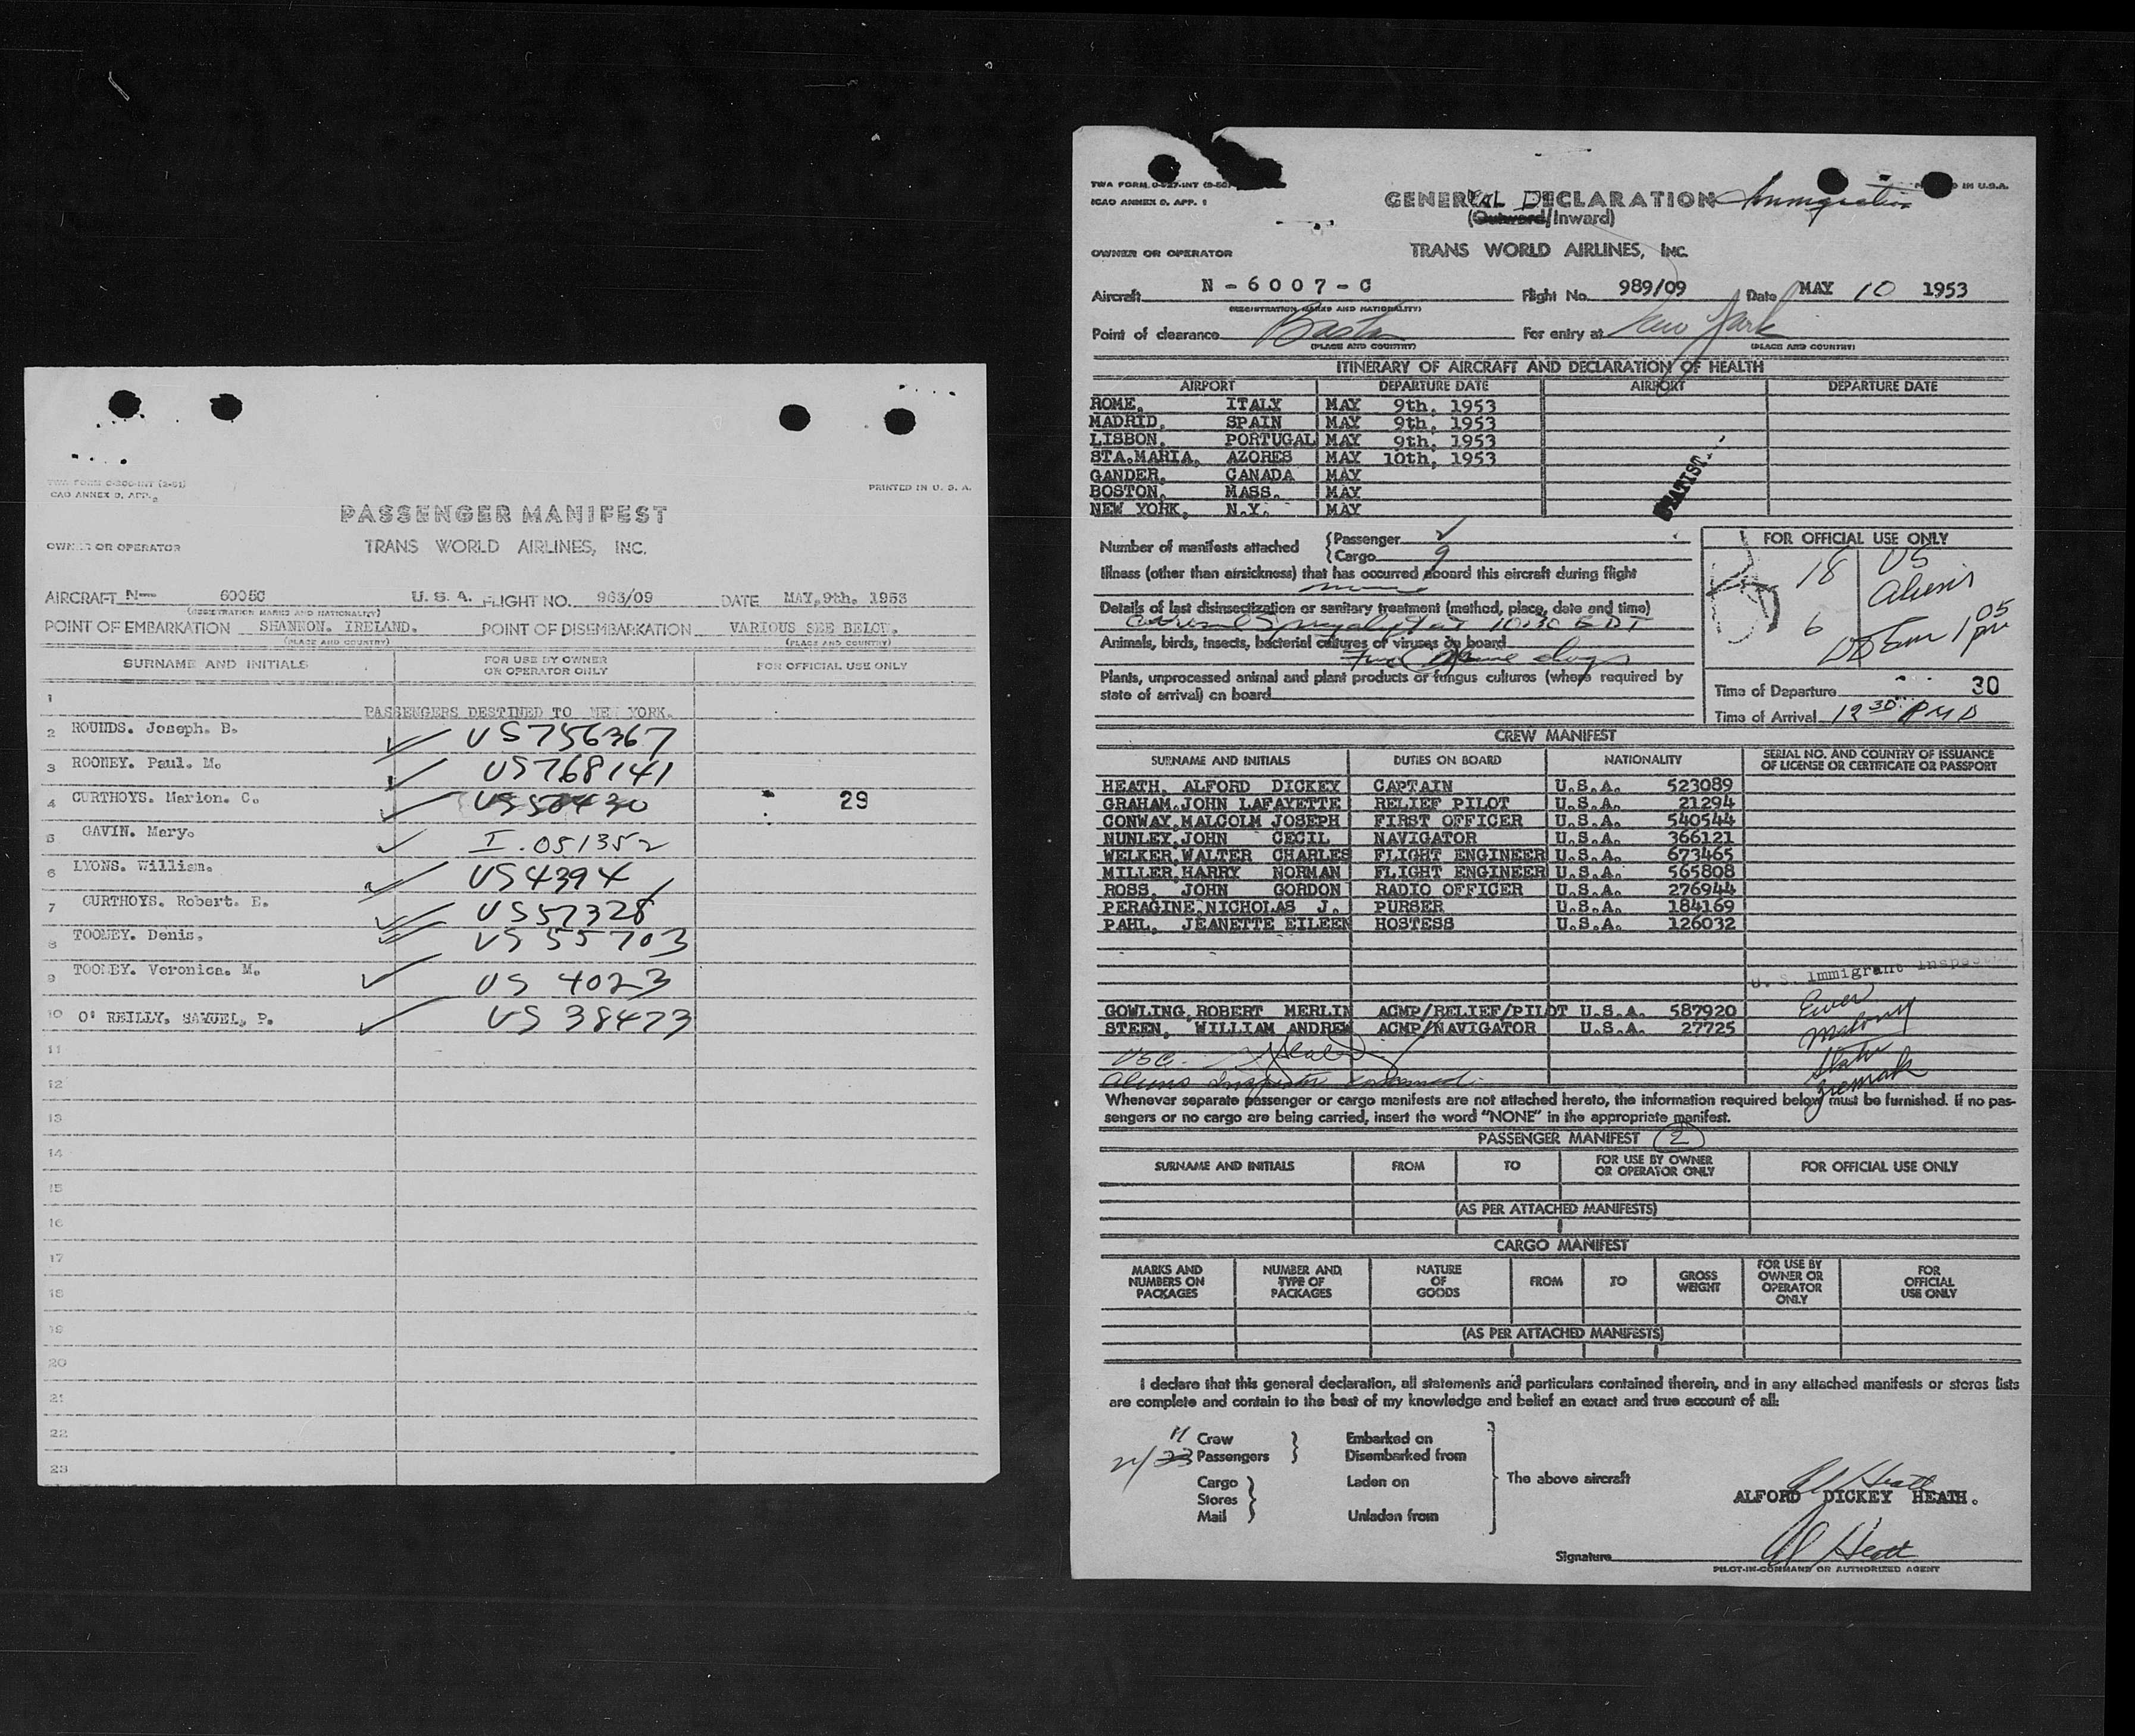 TWA FORM O-300-INT (2-51)
CAO ANNEX D, APP. 2
PRINTED IN U. S. A.
PASSENGER MANIFEST
OWNER OR OPERATOR
TRANS WORLD AIRLINES, INC.
AIRCRAFT N— 6005C U. S. A. FLIGHT NO. 963/09 DATE MAY,9th. 1953
(REGISTRATION MARKS AND NATIONALITY)
POINT OF EMBARKATION SHANNON. IRELAND. POINT OF DISEMBARKATION VARIOUS SEE BELOW.
(PLACE AND COUNTRY) (PLACE AND COUNTRY)
SURNAME AND INITIALS FOR USE BY OWNER OR OPERATOR ONLY FOR OFFICIAL USE ONLY
1
PASSENGERS DESTINED TO NEW YORK.
2 ROUNDS. Joseph. B. US756367
3 ROONEY. Paul. M. US768141
4 CURTHOYS. Marion. C. US50430 29
5 GAVIN. Mary. I.051352
6 LYONS. William. US4394
7 CURTHOYS. Robert. E. US57328
8 TOOMEY. Denis. US 55703
9 TOOMEY. Veronica. M. US 4023
10 O' REILLY, SAMUEL, P. US 38473
11
12
13
14
15
16
17
18
19
20
21
22
23
TWA FORM O-527-INT
ICAO ANNEX D, APP. 1
IN U.S.A.
GENERAL DECLARATION Immigration
(Outward/Inward)
OWNER OR OPERATOR TRANS WORLD AIRLINES, INC.
Aircraft N - 6 0 0 7 - C Flight No. 989/09 Date MAY 10 1953
(REGISTRATION MARKS AND NATIONALITY)
Point of clearance Boston For entry at New York
(PLACE AND COUNTRY) (PLACE AND COUNTRY)
ITINERARY OF AIRCRAFT AND DECLARATION OF HEALTH
AIRPORT DEPARTURE DATE AIRPORT DEPARTURE DATE
ROME, ITALY MAY 9th, 1953
MADRID, SPAIN MAY 9th, 1953
LISBON, PORTUGAL MAY 9th, 1953
STA.MARIA, AZORES MAY 10th, 1953
GANDER, CANADA MAY
BOSTON, MASS. MAY
NEW YORK, N.Y. MAY
Number of manifests attached {Passenger 2
{Cargo 9
FOR OFFICIAL USE ONLY
18 US
6 Aliens
Illness (other than airsickness) that has occurred aboard this aircraft during flight
none
Details of last disinsectization or sanitary treatment (method, place, date and time)
10130 EDT
Animals, birds, insects, bacterial cultures of viruses on board
Two dogs
Plants, unprocessed animal and plant products or fungus cultures (where required by
state of arrival) on board
Time of Departure 30
Time of Arrival 12 30 PM
CREW MANIFEST
SURNAME AND INITIALS DUTIES ON BOARD NATIONALITY SERIAL NO. AND COUNTRY OF ISSUANCE OF LICENSE OR CERTIFICATE OR PASSPORT
HEATH, ALFORD DICKEY CAPTAIN U.S.A. 523089
GRAHAM,JOHN LAFAYETTE RELIEF PILOT U.S.A. 21294
CONWAY,MALCOLM JOSEPH FIRST OFFICER U.S.A. 540544
NUNLEY,JOHN CECIL NAVIGATOR U.S.A. 366121
WELKER,WALTER CHARLES FLIGHT ENGINEER U.S.A. 673465
MILLER,HARRY NORMAN FLIGHT ENGINEER U.S.A. 565808
ROSS, JOHN GORDON RADIO OFFICER U.S.A. 276944
PERAGINE,NICHOLAS J. PURSER U.S.A. 184169
PAHL, JEANETTE EILEEN HOSTESS U.S.A. 126032
U. S. Immigrant Inspector
GOWLING,ROBERT MERLIN ACMP/RELIEF/PILOT U.S.A. 587920
STEEN, WILLIAM ANDREW ACMP/NAVIGATOR U.S.A. 27725
USC.
Aliens Inspector
Whenever separate passenger or cargo manifests are not attached hereto, the information required below must be furnished. If no pas-
sengers or no cargo are being carried, insert the word "NONE" in the appropriate manifest.
PASSENGER MANIFEST 2
SURNAME AND INITIALS FROM TO FOR USE BY OWNER OR OPERATOR ONLY FOR OFFICIAL USE ONLY
(AS PER ATTACHED MANIFESTS)
CARGO MANIFEST
MARKS AND NUMBERS ON PACKAGES NUMBER AND TYPE OF PACKAGES NATURE OF GOODS FROM TO GROSS WEIGHT FOR USE BY OWNER OR OPERATOR ONLY FOR OFFICIAL USE ONLY
(AS PER ATTACHED MANIFESTS)
I declare that this general declaration, all statements and particulars contained therein, and in any attached manifests or stores lists
are complete and contain to the best of my knowledge and belief an exact and true account of all:
11 Crew Embarked on
24/23 Passengers Disembarked from
Cargo Laden on The above aircraft
Stores
Mail Unladen from
Al Heath
ALFORD DICKEY HEATH.
Signature Al Heath
PILOT-IN-COMMAND OR AUTHORIZED AGENT